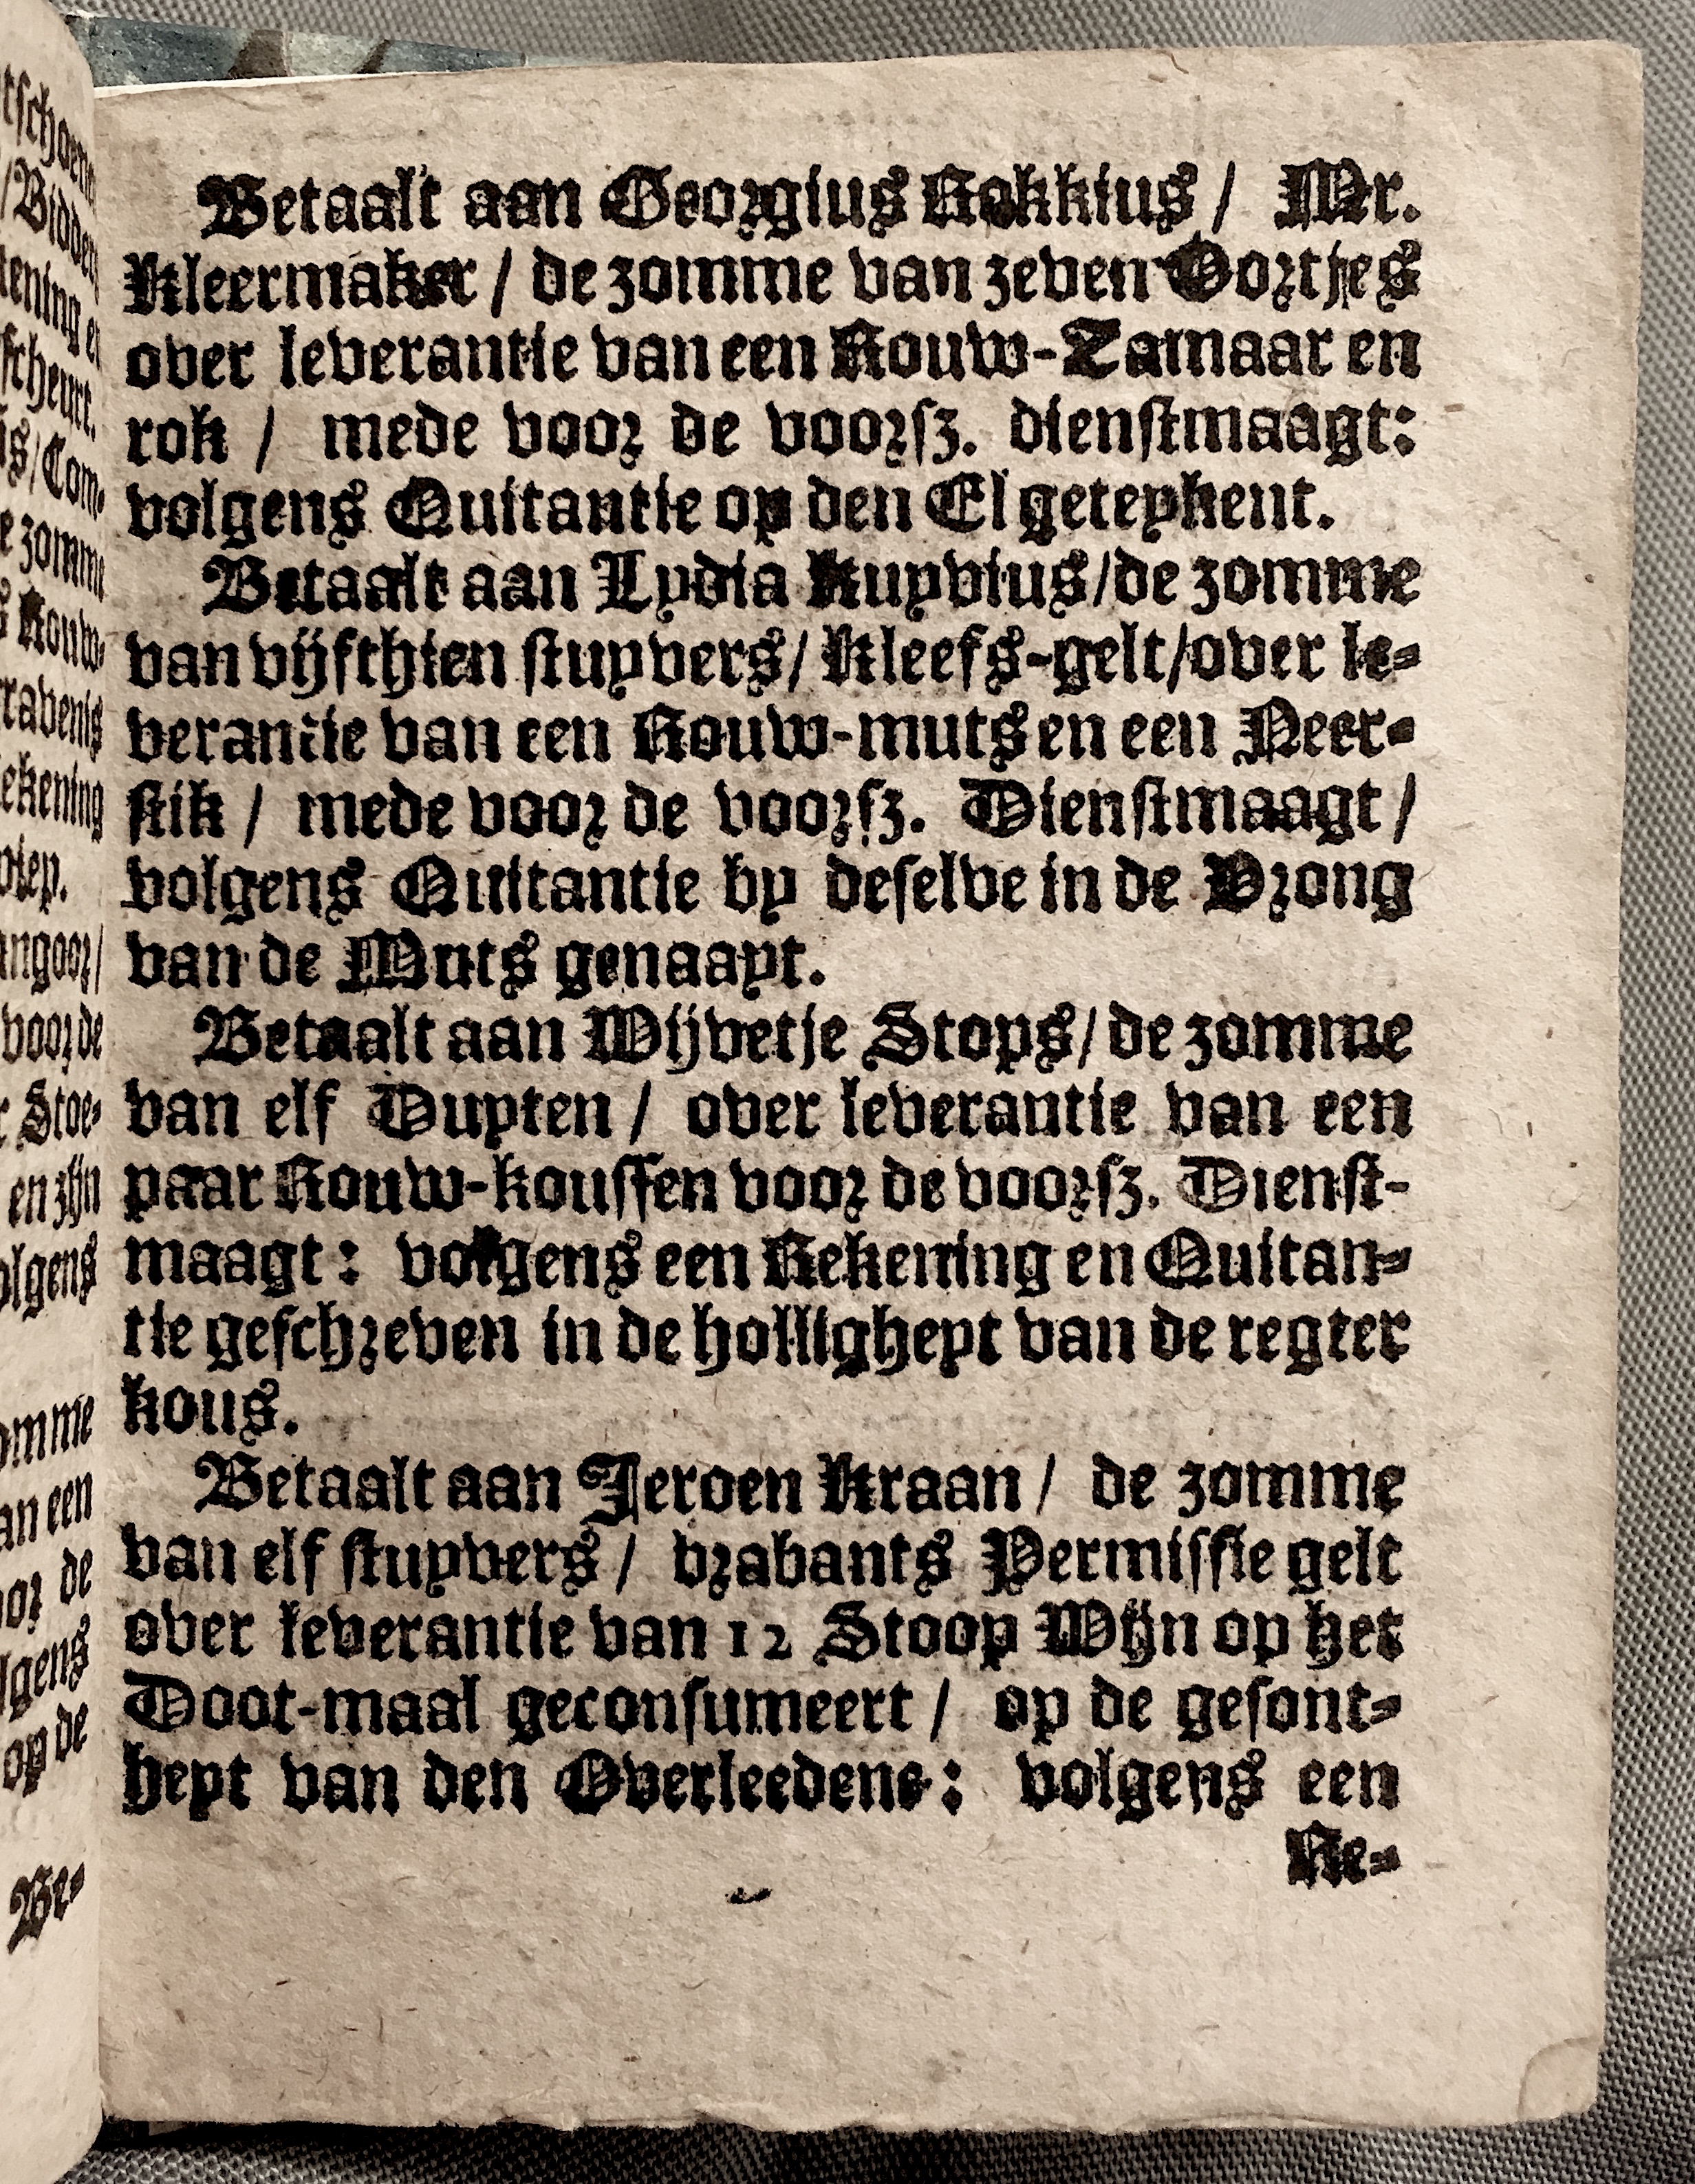 Betaalt aan Georgius Rokkius / Mr.
Kleermaker / de zomme van zeven Oortjes
over leverantie van een Rouw-Tamaar en
rok / mede voor de voorsz. dienstmaagt:
volgens Quitantie op den El geteykent.
Betaalt aan Lydia Kuypius / de zomme
van vijfthien stuyvers / Kleefs-gelt / over le-
verantie van een Rouw-muts en een Neer-
stik / mede voor de voorsz. Dienstmaagt /
volgens Quitantie by deselve in de Prong
van de Muts genaayt.
Betaalt aan Wijvetje Stops / de zomme
van elf Duyten / over leverantie van een
paar Rouw-koussen voor de voorsz. Dienst-
maagt: volgens een Rekening en Quitan-
tie geschreven in de hollligheyt van de regter
kous.
Betaalt aan Jeroen Kraan / de zomme
van elf stuyvers / brabants Permissie gelt
over leverantie van 12 Stoop Wijn op het
Doot-maal geconsumeert / op de gesont-
heyt van den Overleedene: volgens een
Re-